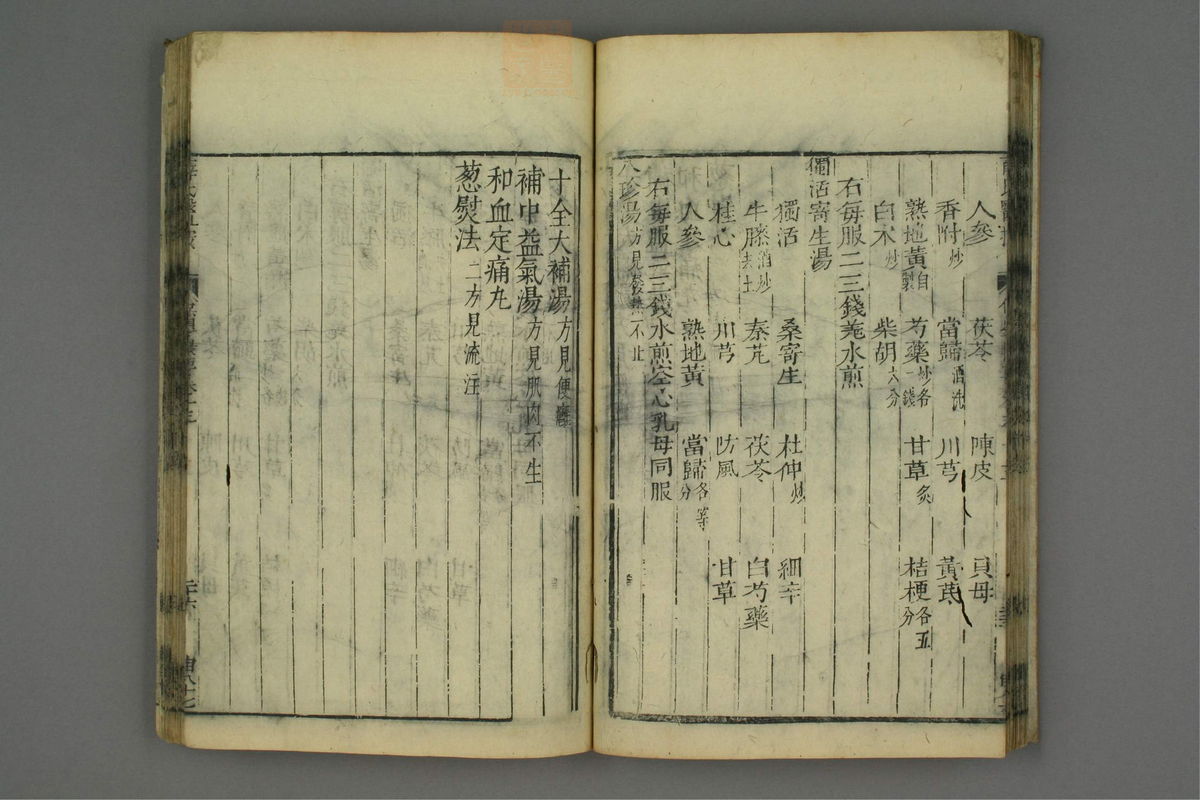 人參　茯苓　陳皮　貝母
香附炒　當歸酒洗　川芎　黃芪
熟地黃自製　芍藥炒各一錢　甘草炙　桔梗各五分
白朮炒　柴胡六分
右每服二三錢姜水煎
獨活寄生湯
獨活　桑寄生　杜仲炒　細辛
牛膝酒炒去土　秦艽　茯苓　白芍藥
桂心　川芎　防風　甘草
人參　熟地黃　當歸各等分
右每服二三錢水煎空心乳母同服
八珍湯方見發熱不止
十全大補湯方見便癰
補中益氣湯方見肌肉不生
和血定痛丸
葱熨法二方見流注